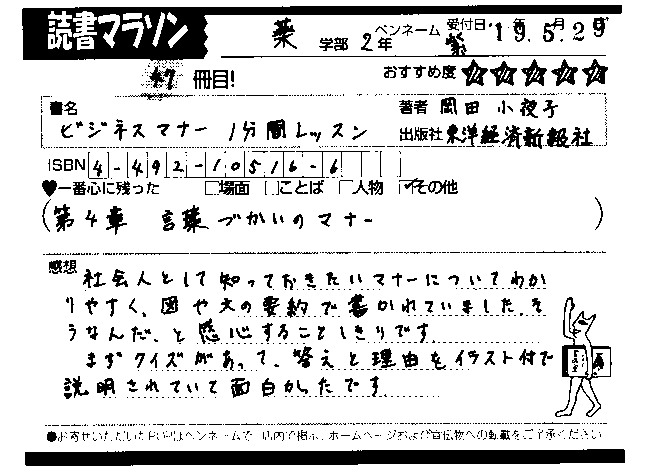 読書マラソン
薬 学部 2年 ペンネーム 紫 受付日 '19.5.29
47 冊目! おすすめ度 ☆☆☆☆☆
書名 ビジネスマナー 1分間レッスン
著者 岡田 小夜子
出版社 東洋経済新報社
ISBN 4-492-10516-6
♥一番心に残った □場面 □ことば □人物 ☑その他
(第4章 言葉づかいのマナー)
感想
社会人として知っておきたいマナーについてわか
りやすく、図や文の要約で書かれていました。そ
うなんだ、と感心することしきりです。
まずクイズがあって、答えと理由をイラスト付で
説明されていて面白かったです。
●お寄せいただいたPOPはペンネームで、店内で掲示、ホームページおよび宣伝物への転載をご了承ください